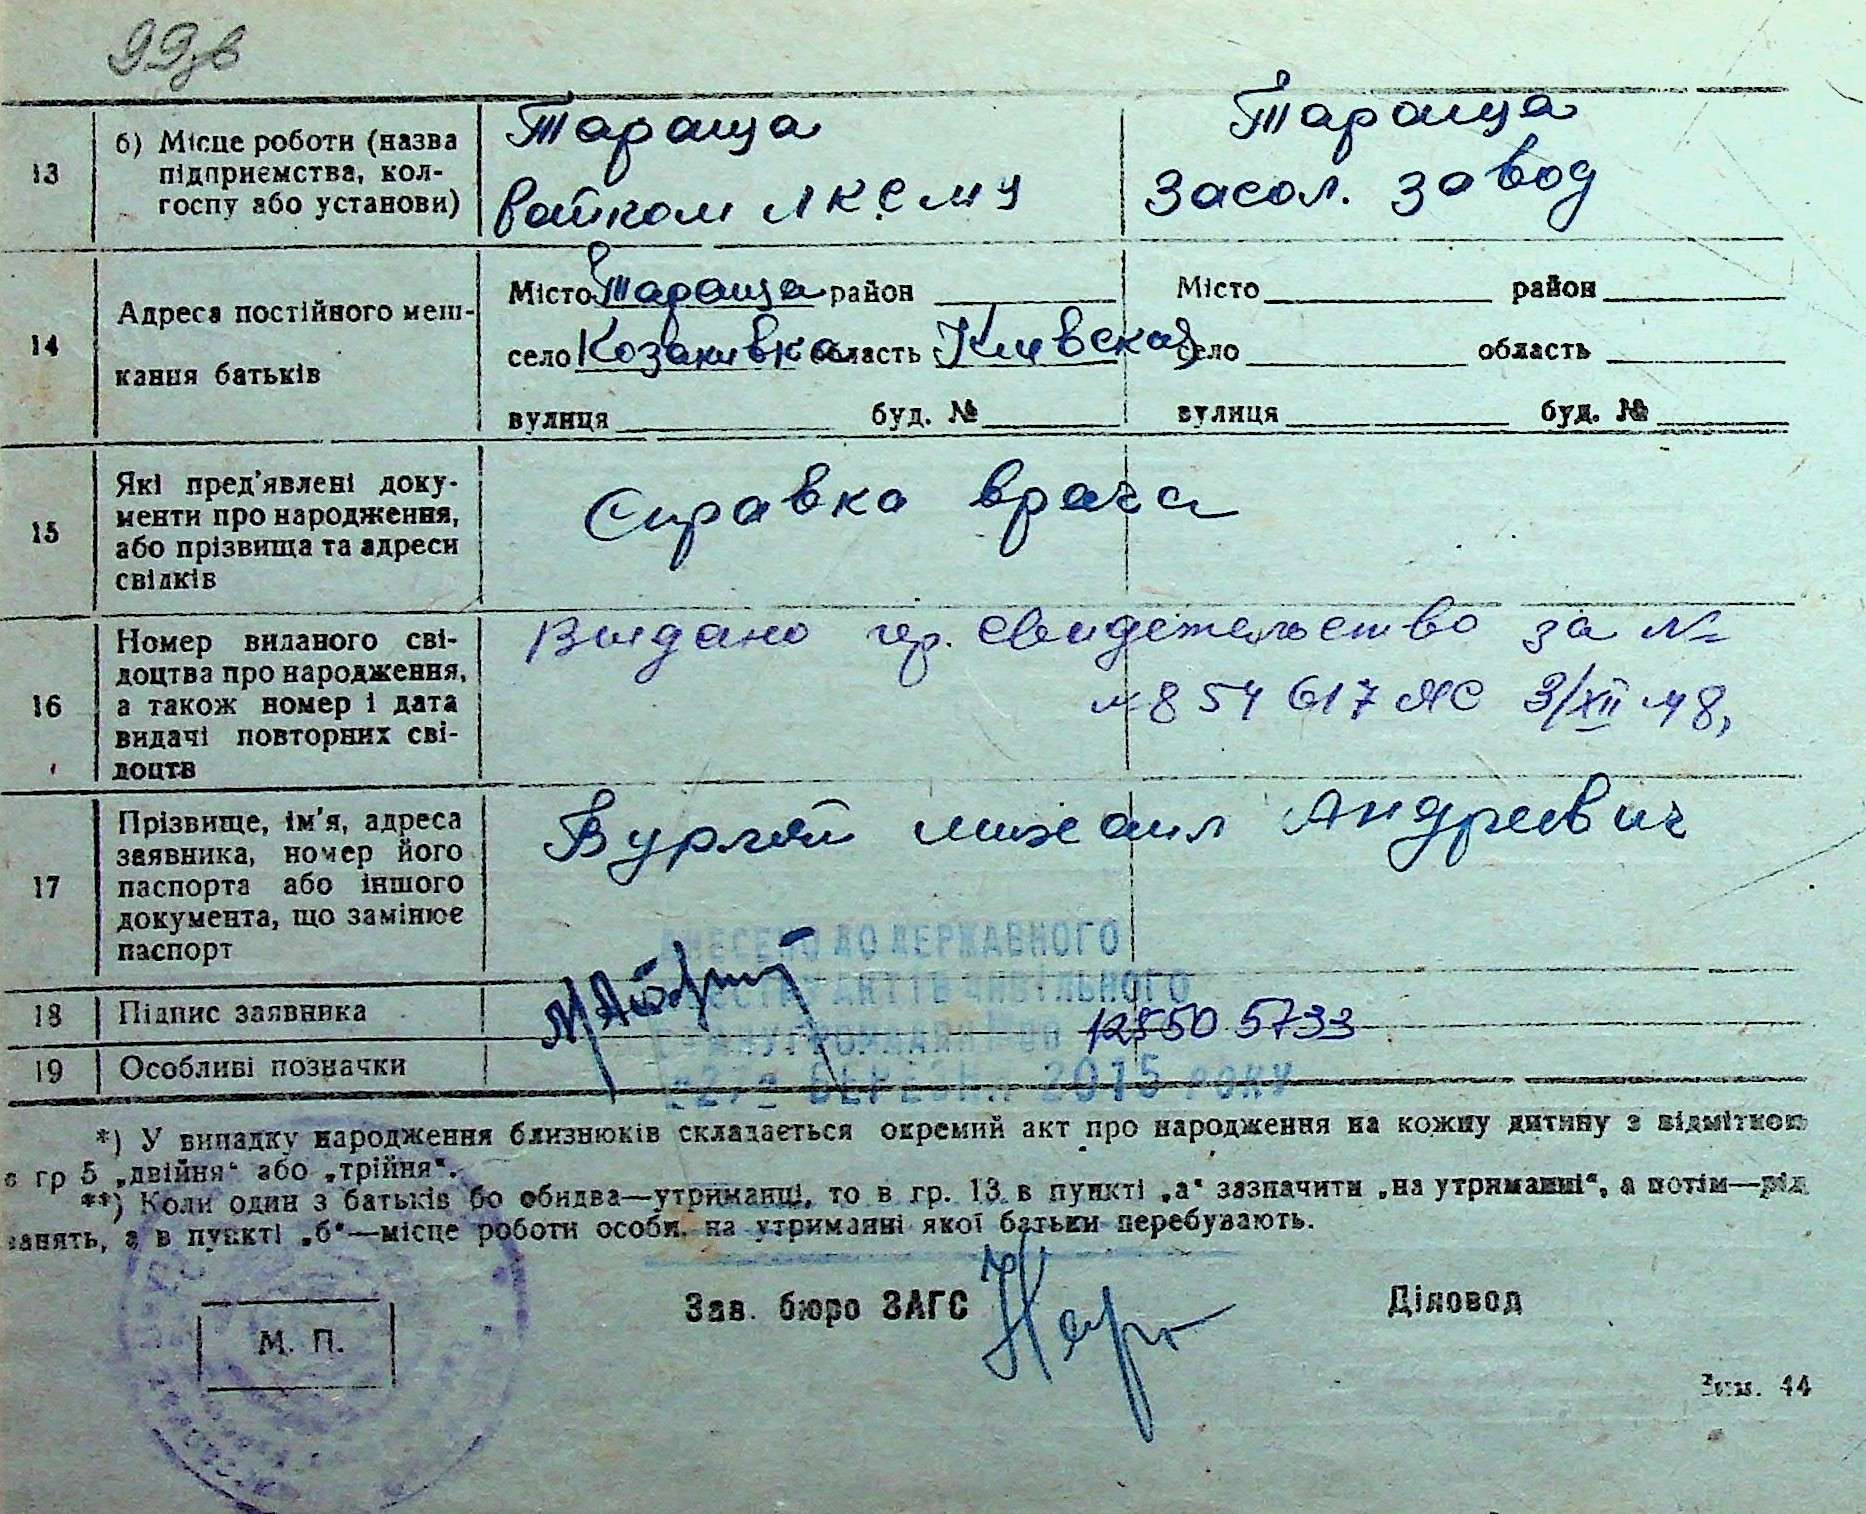 99зв
13
б) Місце роботи (назва
підприємства, кол-
госпу або установи)
Тараща
Райком ЛКСМУ
Тараща
Засол. завод
14
Адреса постійного меш-
кання батьків
Місто Тараща район
село Козаковка область Киевская
вулиця буд. №
Місто район
село область
вулиця буд. №
15
Які пред'явлені доку-
менти про народження,
або прізвища та адреси
свідків
Справка врача
16
Номер виданого сві-
доцтва про народження,
а також номер і дата
видачі повторних сві-
доцтв
Выдано гр. свидетельство за №
854617 3/XII 48,
17
Прізвище, ім'я, адреса
заявника, номер його
паспорта або іншого
документа, що замінює
паспорт
Михаил Андреевич
ВНЕСЕНО ДО ДЕРЖАВНОГО
РЕЄСТРУ АКТІВ ЦИВІЛЬНОГО
СТАНУ ГРОМАДЯН ПО 12550 5733
"27" БЕРЕЗНЯ 2015 РОКУ
18
Підпис заявника
19
Особливі позначки
*) У випадку народження близнюків складається окремий акт про народження на кожну дитину з відміткою
в гр 5 „двійня“ або „трійня“.
**) Коли один з батьків бо обидва—утриманці, то в гр. 13 в пункті „а“ зазначити „на утриманні“, а потім—рід
занять, а в пункті „б“—місце роботи особи, на утриманні якої батьки перебувають.
Зав. бюро ЗАГС
Діловод
М. П.
Зам. 44